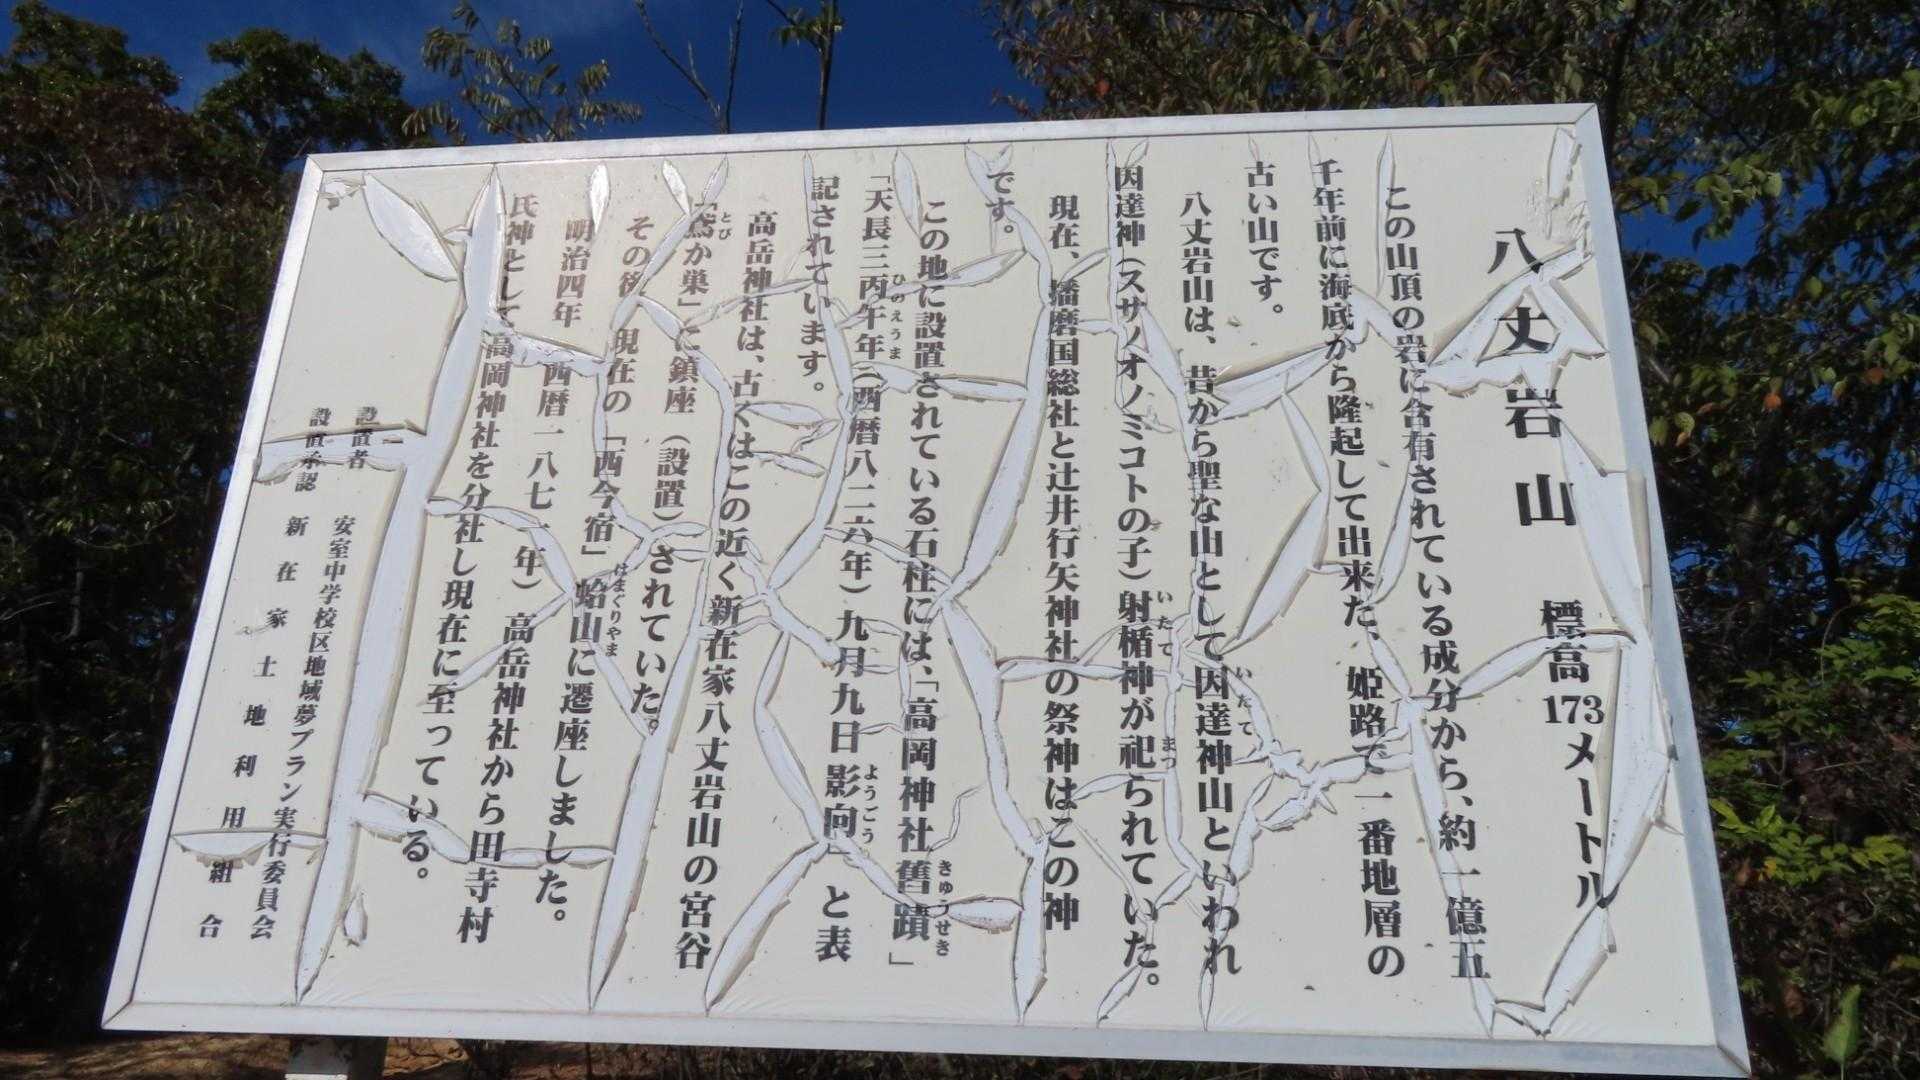 八丈岩山 標高173メートル
この山頂の岩に含有されている成分から、約一億五
千年前に海底から隆起して出来た、姫路で一番地層の
古い山です。
八丈岩山は、昔から聖な山として因達神山といわれ
いたて
因達神(スサノオノミコトの子)射楯神が祀られていた。
いたて まつ
現在、播磨国総社と辻井行矢神社の祭神はこの神
です。
この地に設置されている石柱には、「高岡神社舊蹟」
きゅうせき
「天長三丙午年(西暦八二六年)九月九日影向」と表
ひのえうま ようごう
記されています。
高岳神社は、古くはこの近く新在家八丈岩山の宮谷
「鳶か巣」に鎮座(設置)されていた。
とび
その後 現在の「西今宿」蛤山に遷座しました。
はまぐりやま
明治四年(西暦一八七一年)高岳神社から田寺村
氏神として高岡神社を分社し現在に至っている。
設置者 安室中学校区地域夢プラン実行委員会
設置承認 新在家土地利用組合